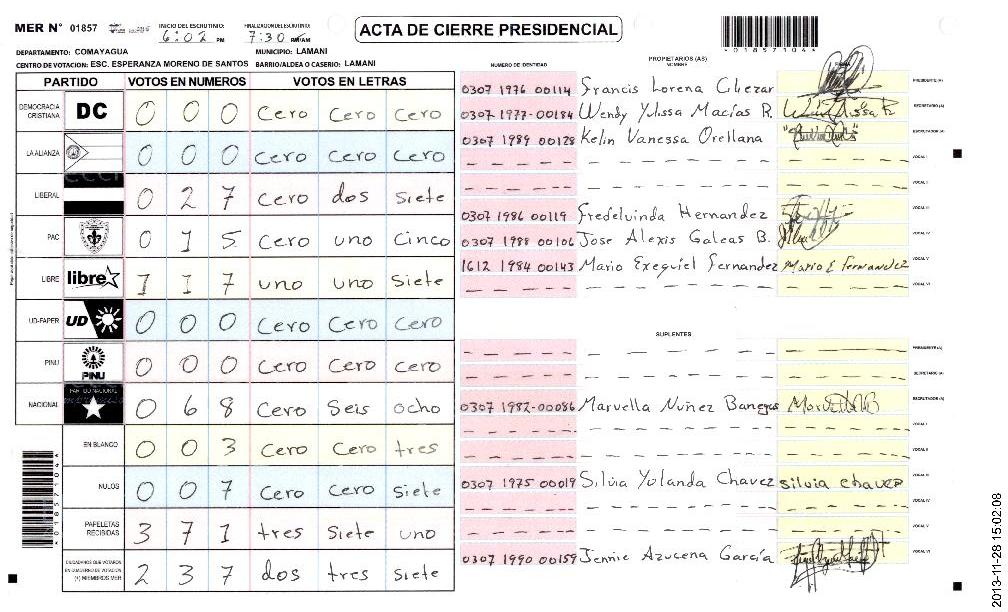 MER N° 01857
INICIO DEL ESCRUTINIO: 6:02 PM
FINALIZACION DEL ESCRUTINIO: 7:30 PM/AM
ACTA DE CIERRE PRESIDENCIAL
018571044
DEPARTAMENTO: COMAYAGUA MUNICIPIO: LAMANI
CENTRO DE VOTACION: ESC. ESPERANZA MORENO DE SANTOS BARRIO/ALDEA O CASERIO: LAMANI
PARTIDO VOTOS EN NUMEROS VOTOS EN LETRAS
DEMOCRACIA CRISTIANA DC 0 0 0 Cero Cero Cero
LA ALIANZA 0 0 0 Cero Cero Cero
LIBERAL 0 2 7 Cero dos siete
PAC 0 1 5 Cero uno Cinco
LIBRE libre 1 1 7 uno uno Siete
UD-FAPER UD 0 0 0 Cero Cero Cero
PINU PINU 0 0 0 Cero Cero Cero
NACIONAL PARTIDO NACIONAL 0 6 8 Cero Seis ocho
EN BLANCO 0 0 3 Cero Cero tres
NULOS 0 0 7 Cero Cero Siete
PAPELETAS RECIBIDAS 3 7 1 tres Siete uno
CIUDADANOS QUE VOTARON EN CUADERNO DE VOTACION (+) MIEMBROS MER 2 3 7 dos tres Siete
NUMERO DE IDENTIDAD PROPIETARIOS (AS) NOMBRE FIRMA
0307 1976 00114 Francis Lorena Cliezar PRESIDENTE (A)
0307 1977-00184 Wendy Yulissa Macías R. SECRETARIO (A)
0307 1989 00128 Kelin Vanessa Orellana ESCRUTADOR (A)
VOCAL I
VOCAL II
0307 1986 00119 Fredelvinda Hernandez VOCAL III
0307 1988 00106 Jose Alexis Galeas B. VOCAL IV
1612 1984 00143 Mario Exequiel Fernandez Mario E Fernandez VOCAL V
VOCAL VI
SUPLENTES
PRESIDENTE (A)
SECRETARIO (A)
0307 1982-00086 Marvella Nuñez Banegas ESCRUTADOR (A)
VOCAL I
VOCAL II
0307 1975 00019 Silvia Yolanda Chavez silvia chavez VOCAL III
VOCAL IV
VOCAL V
0307 1990 00159 Jennie Azucena García VOCAL VI
018571044
2013-11-28 15:02:08